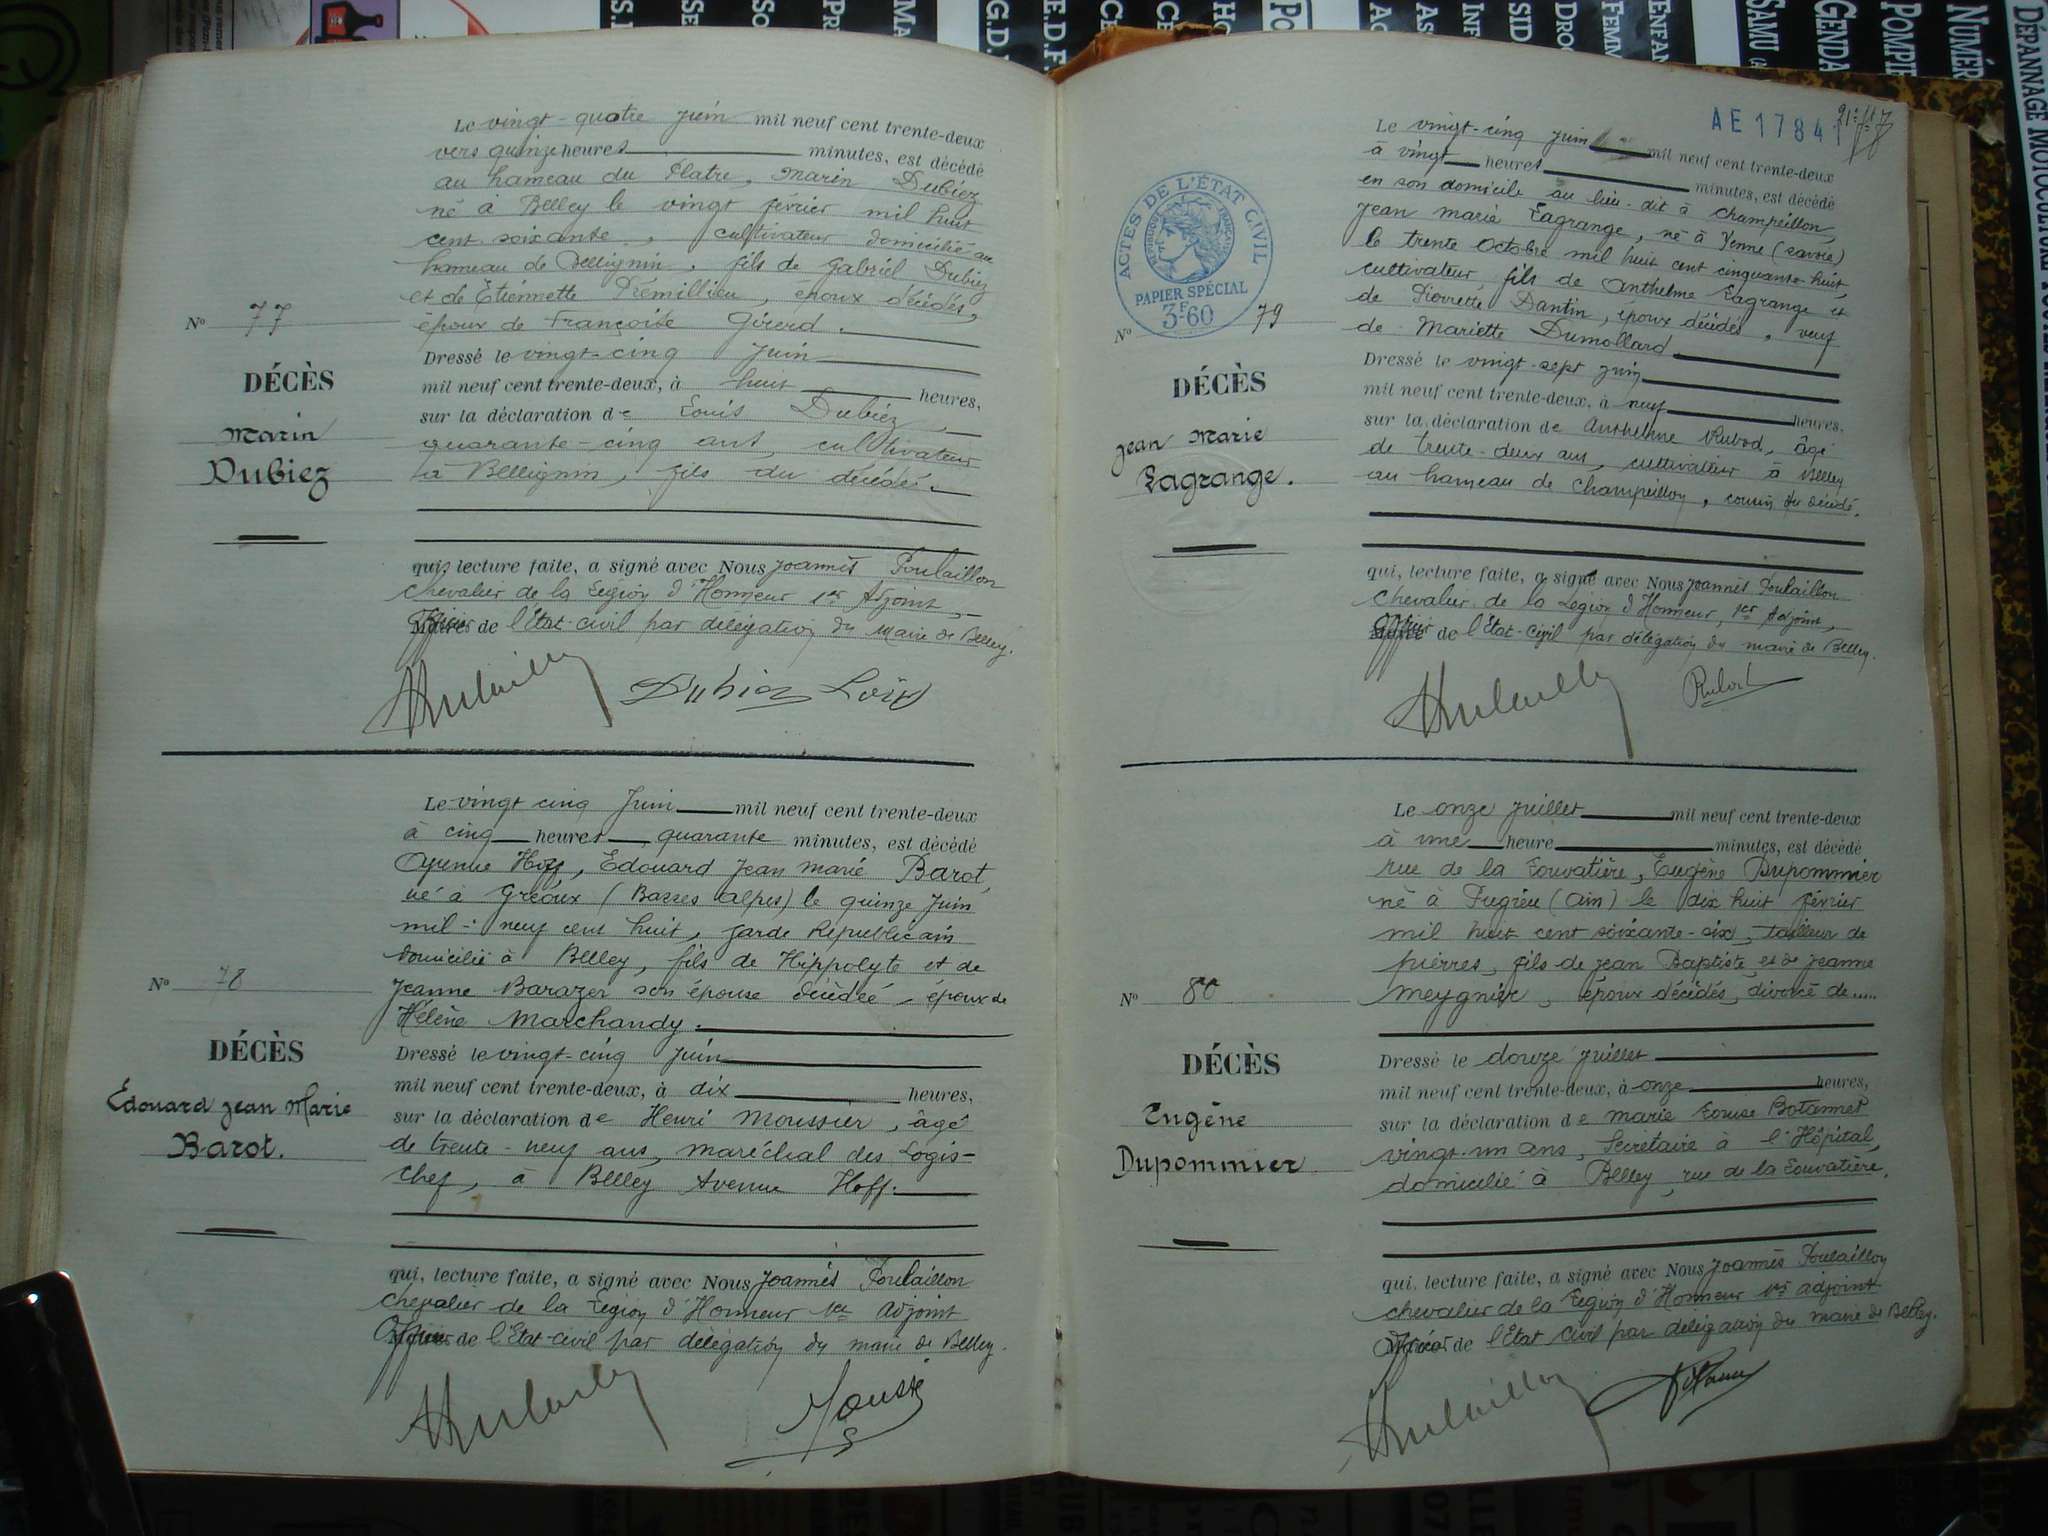 Le vingt-quatre juin mil neuf cent trente-deux
vers quinze heures minutes, est décédé
au hameau du Platre, Marin Dubiez
né à Belley le vingt février mil huit
cent soixante, cultivateur domicilié au
hameau de Bellignin, fils de Gabriel Dubiez
et de Etiennette Prémillieu, époux décédés,
époux de Françoise Girerd.
Nº 77
DÉCÈS
Marin
Dubiez
Dressé le vingt-cinq juin
mil neuf cent trente-deux, à huit heures,
sur la déclaration de Louis Dubiez,
quarante-cinq ans, cultivateur
à Bellignin, fils du décédé.
qui, lecture faite, a signé avec Nous Joannès Poulaillon
Chevalier de la Légion d'Honneur 1er Adjoint,
Officier de l'État-civil par délégation du Maire de Belley.
Dubiez Loui
Le vingt cinq Juin mil neuf cent trente-deux
à cinq heures quarante minutes, est décédé
Avenue Hoff, Edouard Jean Marie Barot,
né à Gréoux (Basses alpes) le quinze Juin
mil neuf cent huit, garde Républicain
domicilié à Belley, fils de Hippolyte et de
Jeanne Barazer son épouse décédée, époux de
Hélène Marchandy.
Nº 78
DÉCÈS
Edouard Jean Marie
Barot.
Dressé le vingt-cinq Juin
mil neuf cent trente-deux, à dix heures,
sur la déclaration de Henri Moussier, âgé
de trente-neuf ans, maréchal des Logis-
chef, à Belley Avenue Hoff.
qui, lecture faite, a signé avec Nous Joannès Poulaillon
chevalier de la Légion d'Honneur 1er adjoint
Officier de l'Etat-civil par délégation du maire de Belley.
AE 1784
Le vingt-cinq Juin mil neuf cent trente-deux
à vingt heures minutes, est décédé
en son domicile au lieu-dit à Champeillon,
Jean Marie Lagrange, né à Yenne (Savoie)
le trente Octobre mil huit cent cinquante-huit,
cultivateur, fils de Anthelme Lagrange et
de Pierrette Dantin, époux décédés, veuf
de Mariette Dumollard
ACTES DE L'ÉTAT CIVIL
RÉPUBLIQUE FRANÇAISE
PAPIER SPÉCIAL
3F60
Nº 79
DÉCÈS
Jean Marie
Lagrange.
Dressé le vingt-sept juin
mil neuf cent trente-deux, à neuf heures,
sur la déclaration de Anthelme Rubod, âgé
de trente-deux ans, cultivateur à Belley
au hameau de Champeillon, cousin du décédé.
qui, lecture faite, a signé avec Nous Joannès Poulaillon
Chevalier de la Légion d'Honneur, 1er Adjoint,
Officier de l'État-Civil par délégation du maire de Belley.
Rubod
Le onze Juillet mil neuf cent trente-deux
à une heure minutes, est décédé
rue de la Louvatière, Eugène Dupommier
né à Pugieu (Ain) le dix huit février
mil huit cent soixante-six, tailleur de
pierres, fils de Jean Baptiste et de Jeanne
Meygnier, époux décédés, divorcé de .....
Nº 80
DÉCÈS
Eugène
Dupommier
Dressé le douze Juillet
mil neuf cent trente-deux, à onze heures,
sur la déclaration de Marie Louise Botannet
vingt-un ans, Secrétaire à l'Hôpital,
domicilié à Belley, rue de la Louvatière.
qui, lecture faite, a signé avec Nous Joannès Poulaillon
chevalier de la Légion d'Honneur 1er adjoint
Officier de l'État Civil par délégation du maire de Belley.
DÉPANNAGE MOTOCULTURE
NUMÉR
POMPIE
GENDA
SAMU
ENFAN
FEMM
DROG
SID
INF